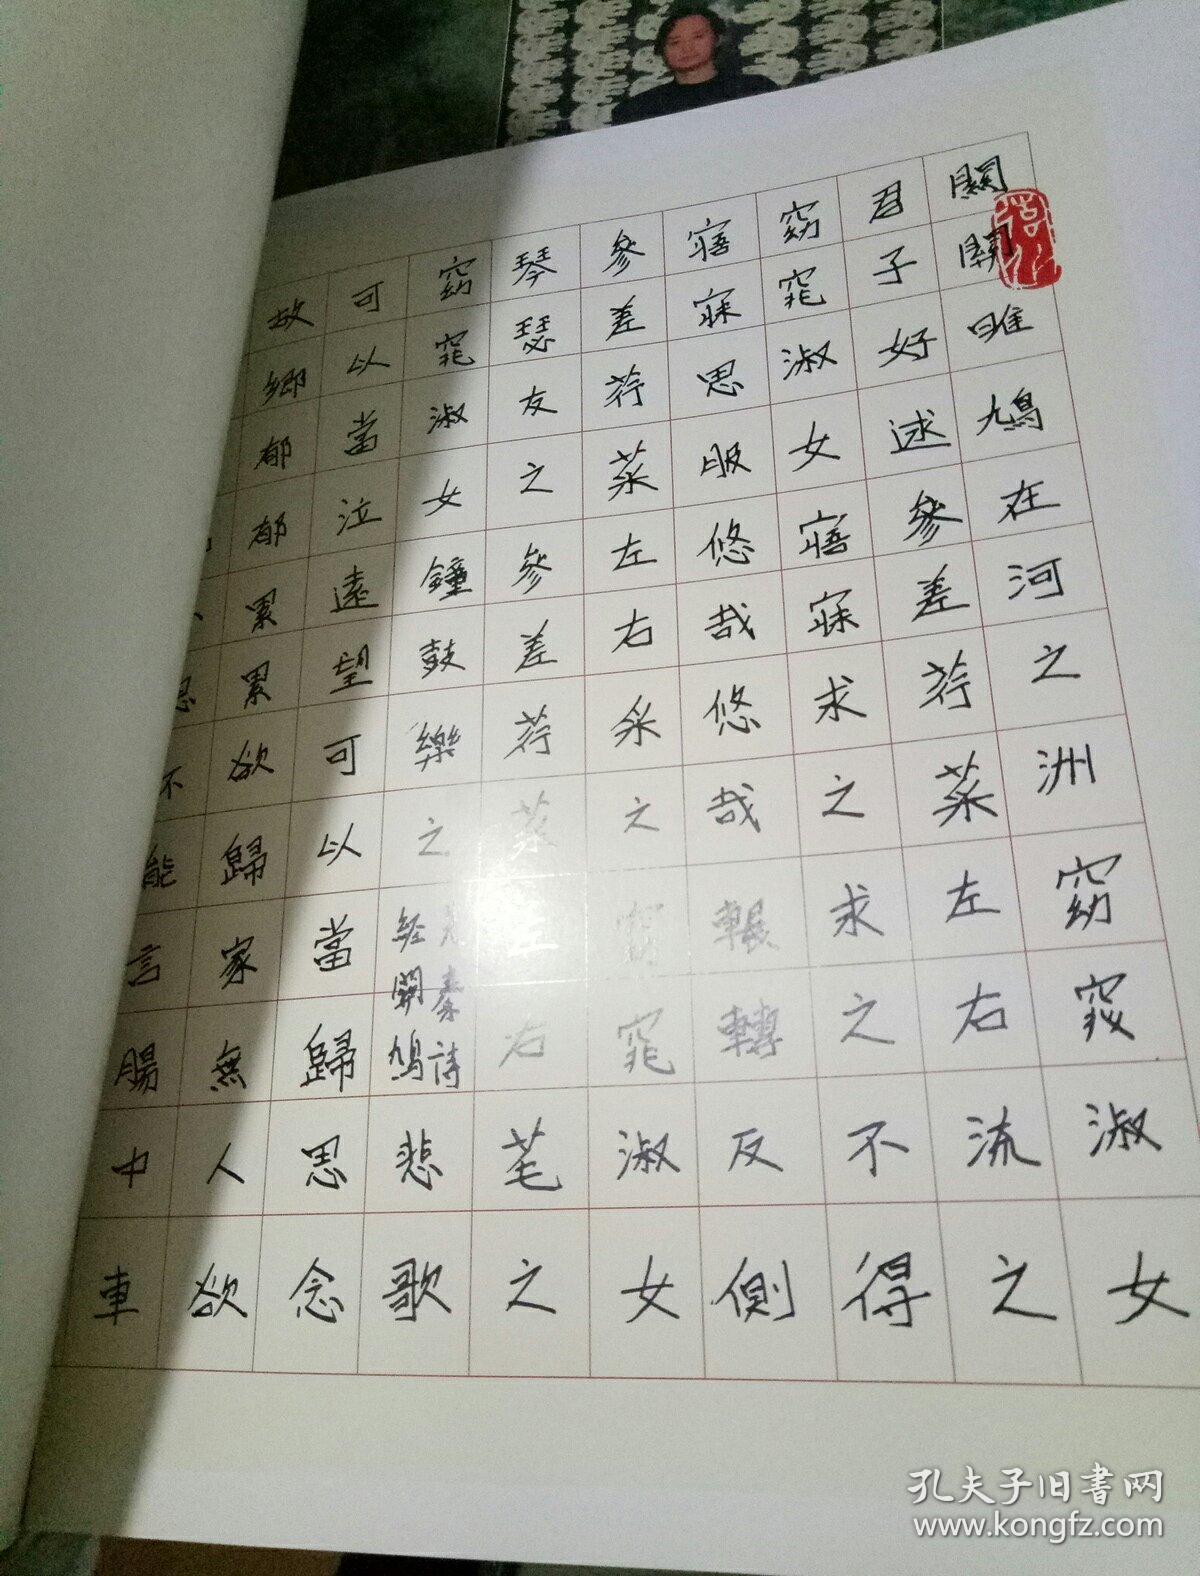 關關雎鳩在河之洲窈窕淑女
君子好逑參差荇菜左右流之
窈窕淑女寤寐求之求之不得
寤寐思服悠哉悠哉輾轉反側
參差荇菜左右采之窈窕淑女
琴瑟友之參差荇菜左右芼之
窈窕淑女鐘鼓樂之先秦詩经關鳩悲歌
可以當泣遠望可以當歸思念
故鄉郁郁累累欲歸家無人欲
思不能言腸中車
孔夫子旧书网
www.kongfz.com